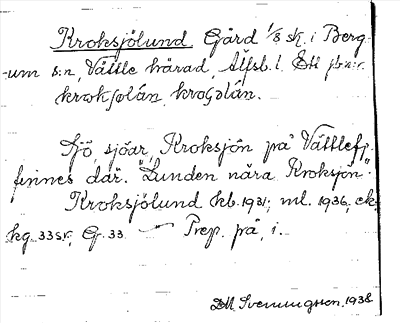 Kroksjölund Gård 1/8 sk. i Berg-
um s:n, Vättle härad, Älfsb. l. Ett jb:nr.
Sjö, sjöar, Kroksjön på Vättlefj.
finnes där. "Lunden nära Kroksjön".
Kroksjölund kb. 1931; ml. 1936, ek.
kg. 33 sr, G. 33. — Prep. på, i.
D. Svenningsson. 1938